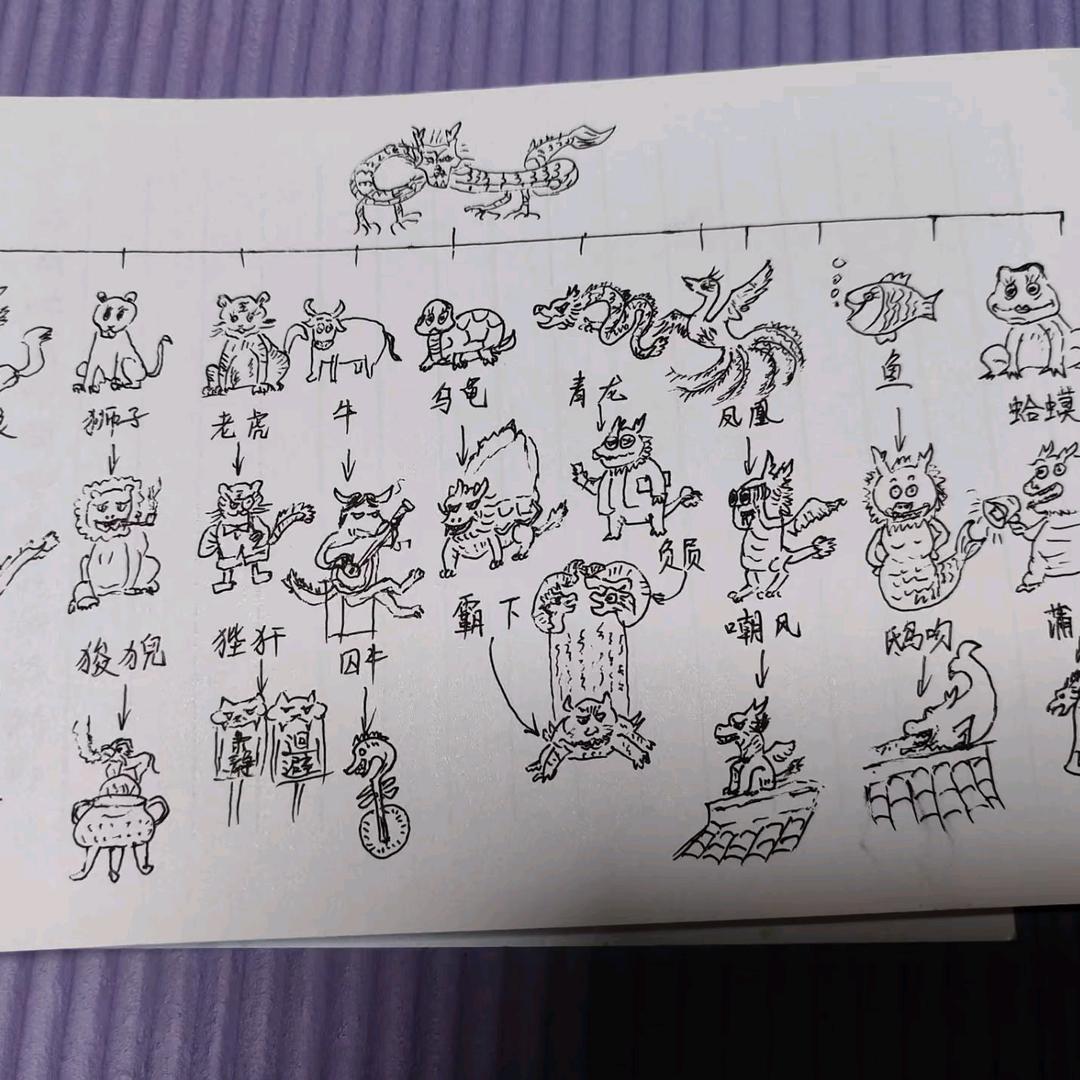 狮子
老虎
牛
乌龟
青龙
凤凰
鱼
蛤蟆
狻猊
狴犴
囚牛
霸下
负屃
嘲风
鸱吻
蒲
肃静
迴避